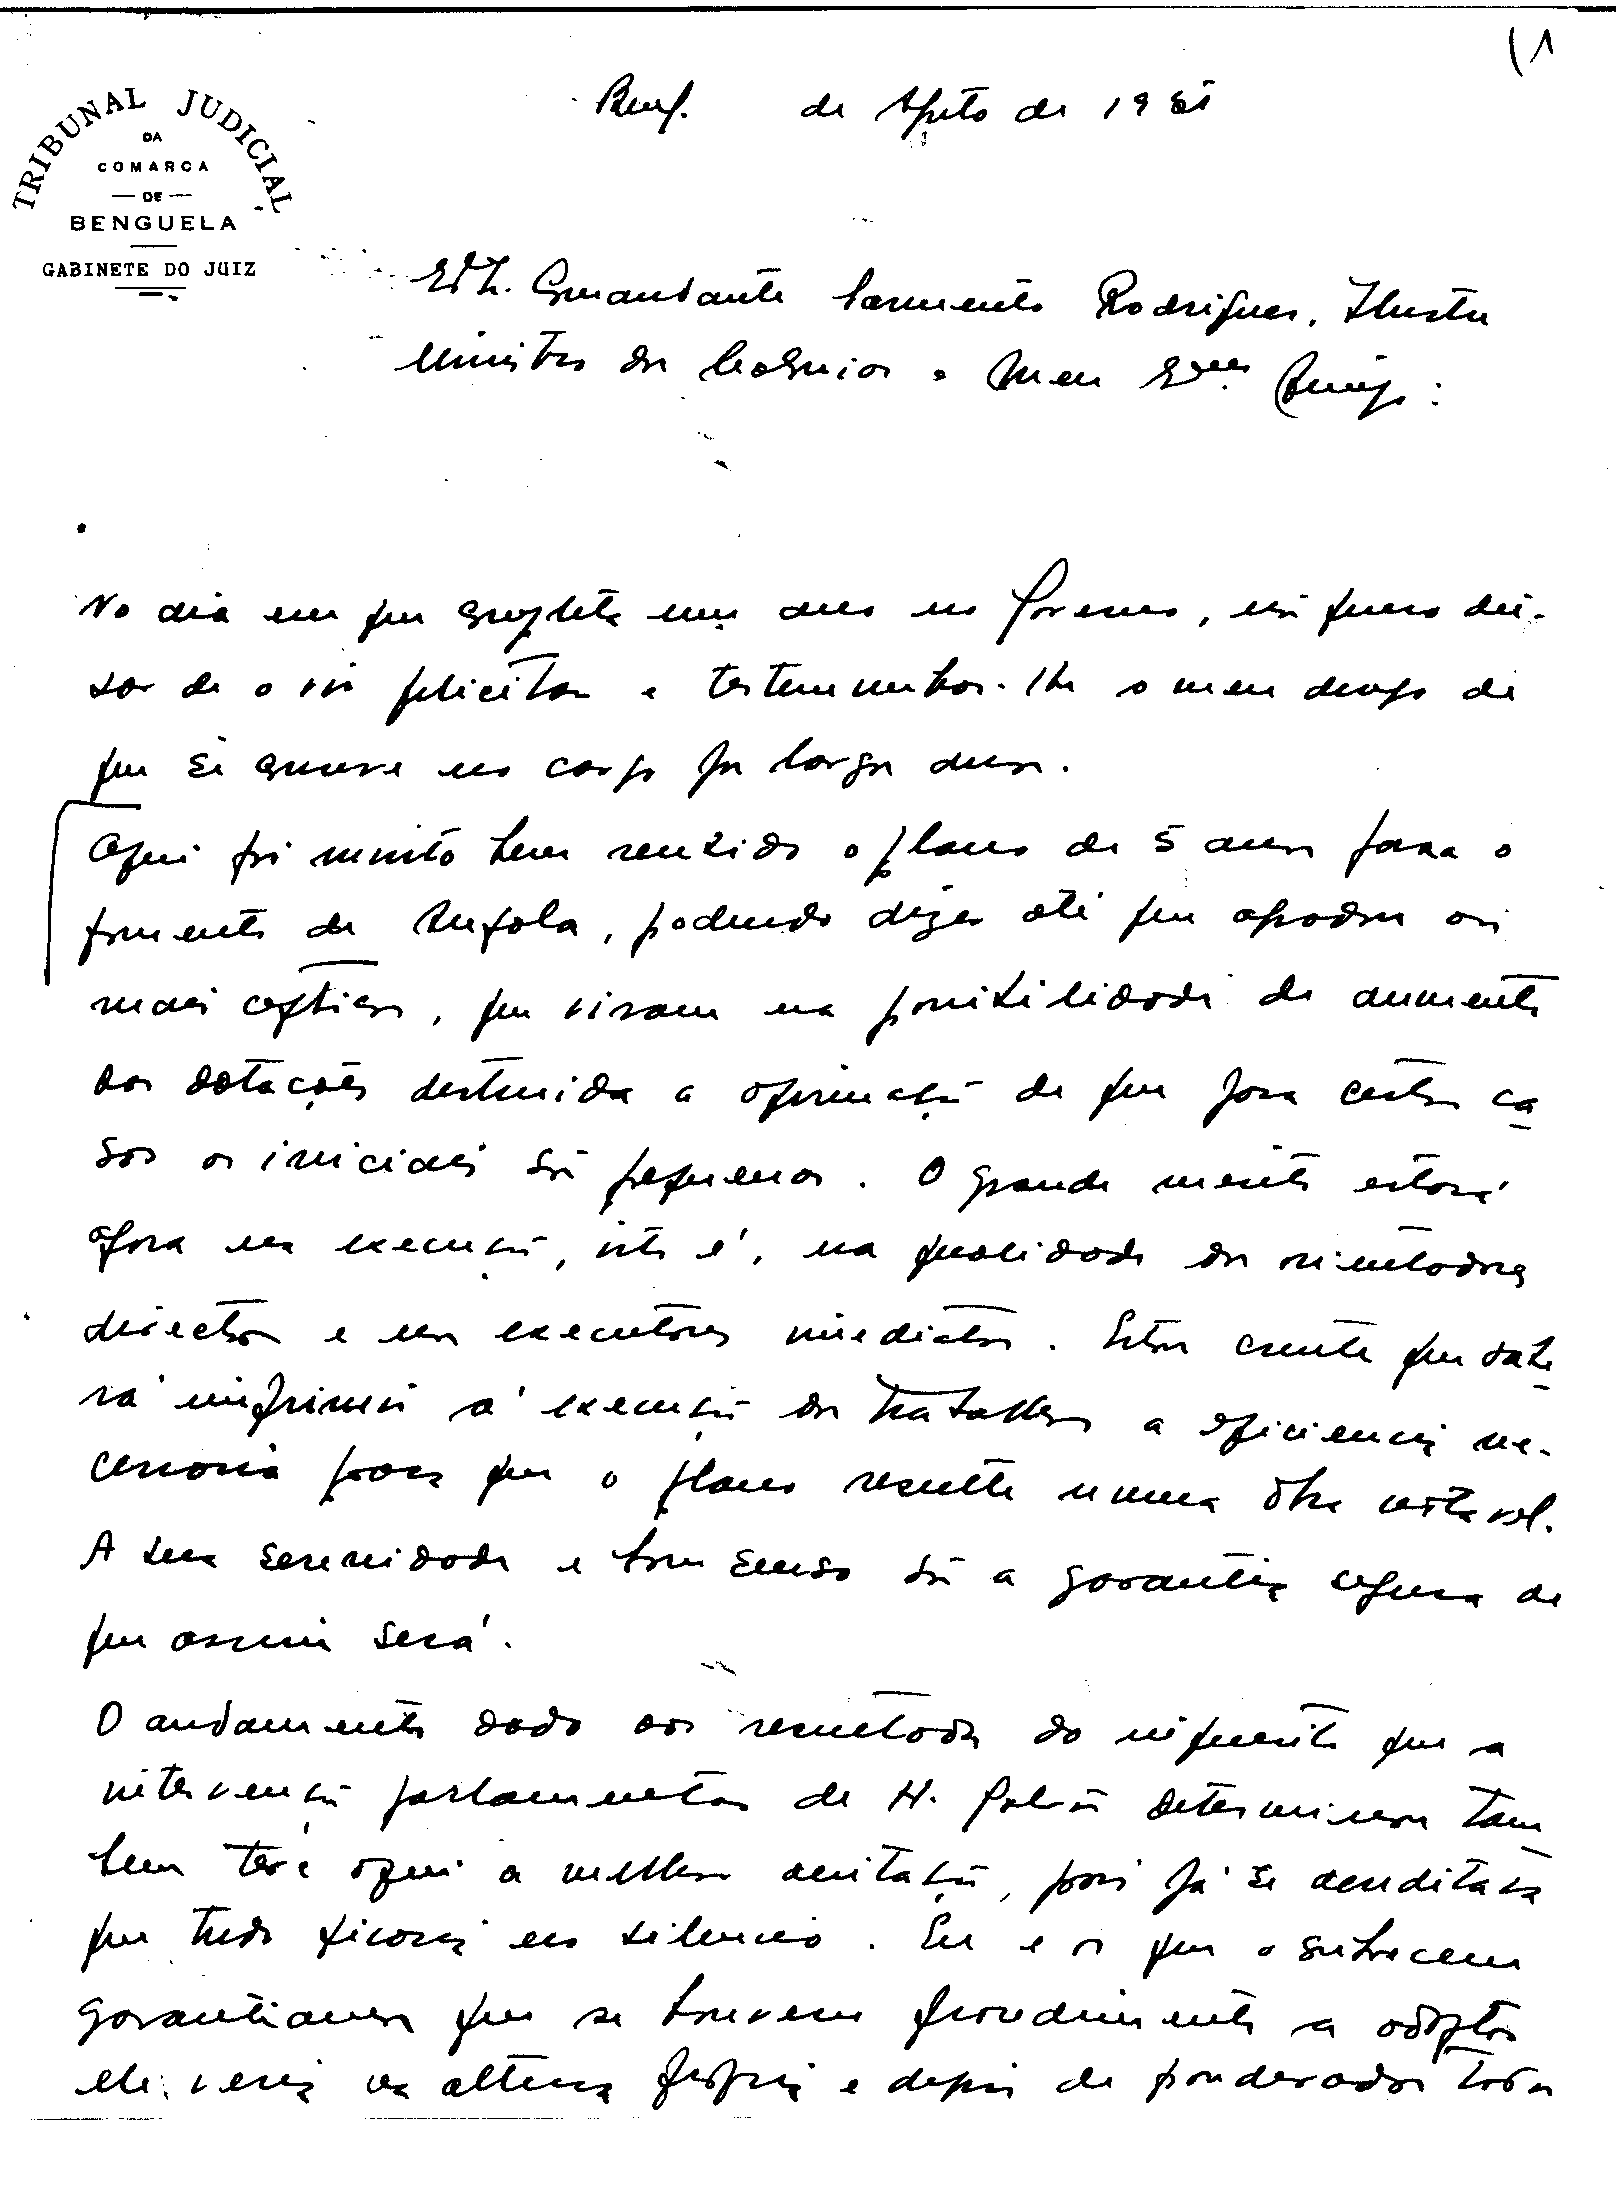 (1
TRIBUNAL JUDICIAL
DA
COMARCA
— DE —
BENGUELA
GABINETE DO JUIZ
Beng. de Agosto de 1951
Comandante Sarmento Rodrigues, Ilustre
Ministro das Colonias e Meu Exmo Amigo:
No dia em que completa um ano no Governo, não quero dei-
xar de o vir felicitar e testemunhar-lhe o meu desejo de
que se conserve no cargo por largos anos.
Aqui foi muito bem recebido o plano de 5 anos para o
fomento de Angola, podendo dizer até que agradou aos
mais cepticos, que viram na possibilidade de aumento
das dotações destruida a afirmação de que para certos ca
sos as iniciais são pequenas. O grande merito estará
agora na execução, isto é, na qualidade dos orientadores
directos e nos executores imediatos. Estou crente que sabe
rá imprimir á execução dos trabalhos a eficiencia ne-
cessaria para que o plano resulte numa obra notavel.
A sua serenidade e bom senso são a garantia segura de
que assim será.
O andamento dado aos resultados do inquerito que a
intervenção parlamentar de H. Galvão determinou tam
bem teve aqui a melhor aceitação, pois já se acreditava
que tudo ficaria no silencio. Eu e os que o conhecem
garantiamos que se houvesse procedimento a adoptar
ele viria na altura propria e depois de ponderados todos